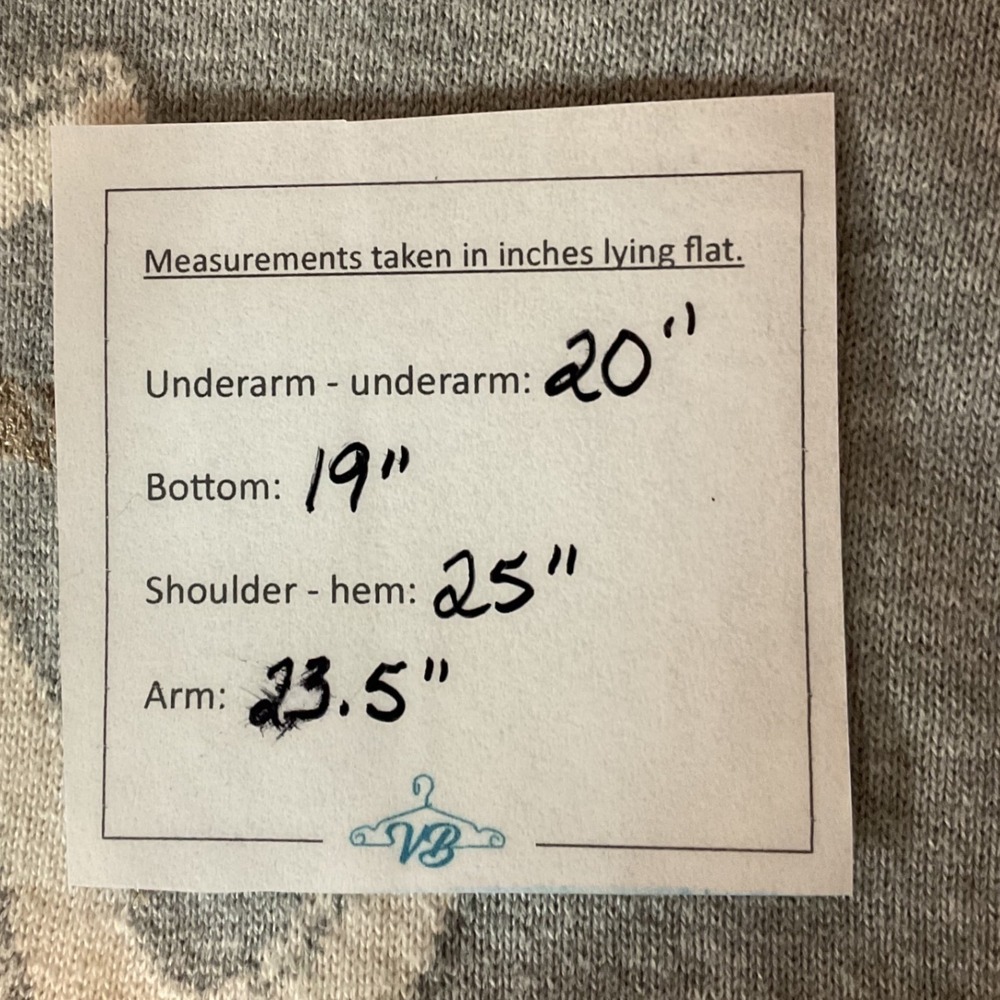 Measurements taken in inches lying flat.
Underarm - underarm: 20"
Bottom: 19"
Shoulder - hem: 25"
Arm: 23.5"
VB